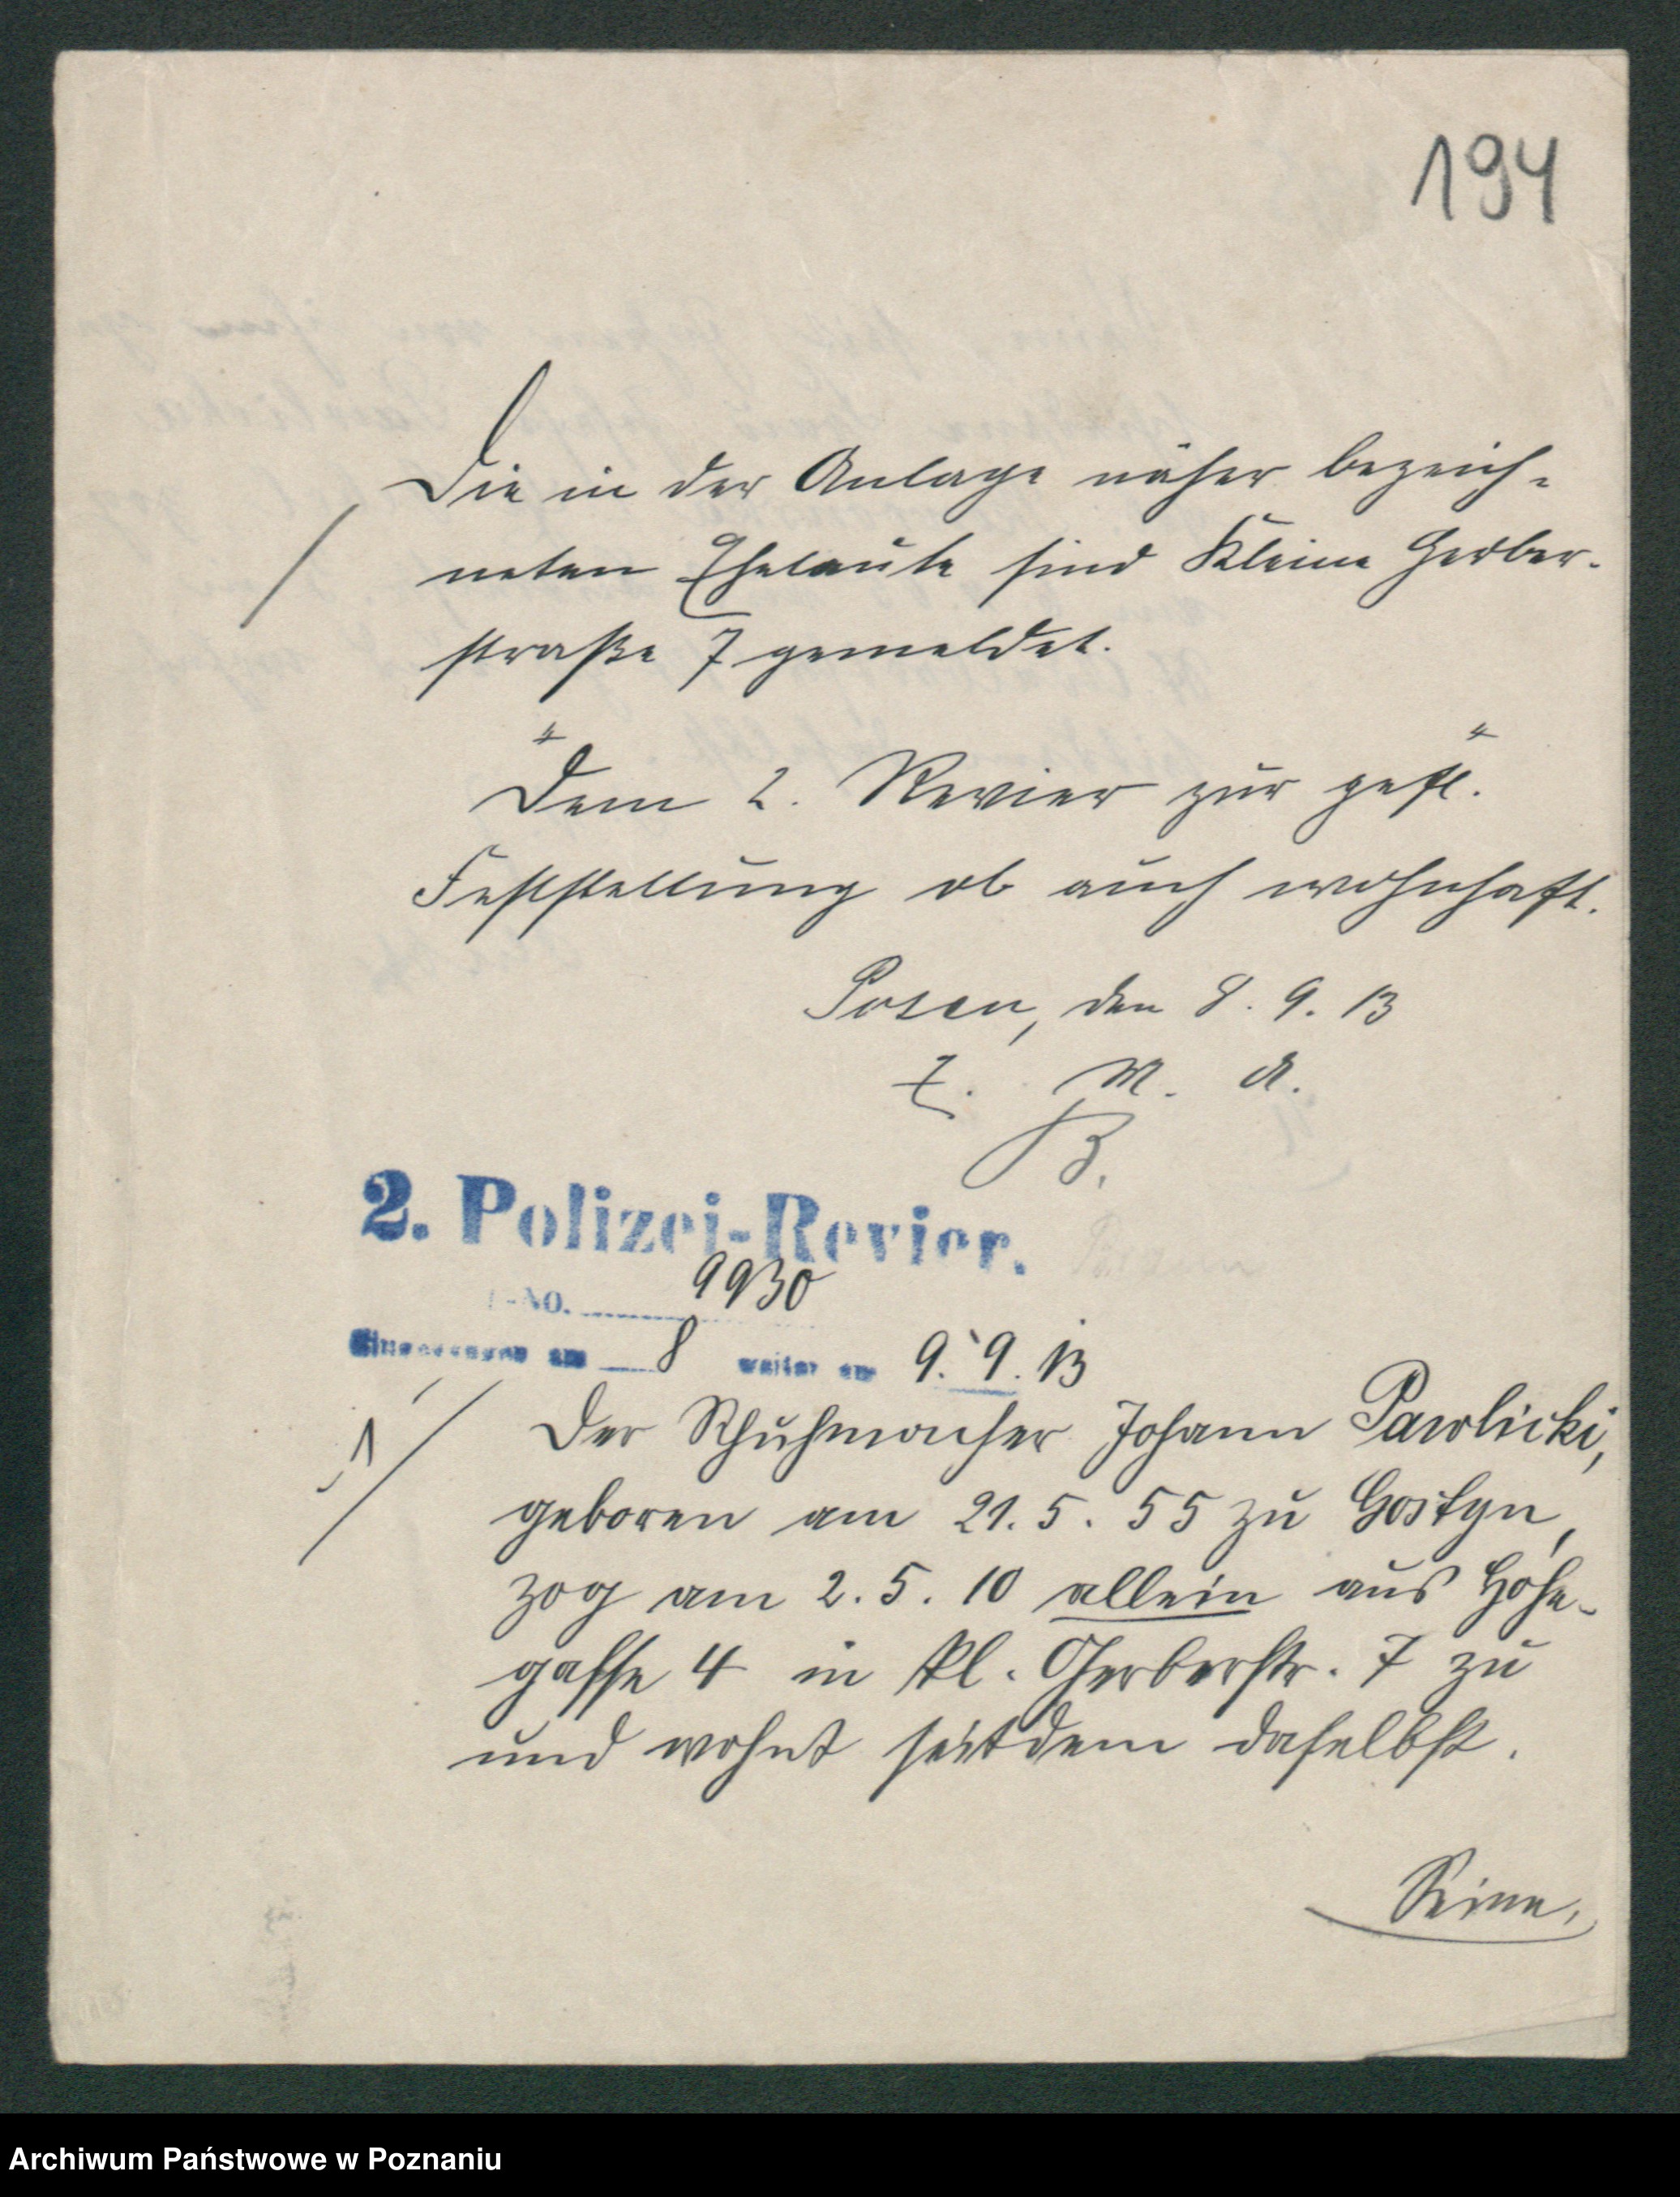 194
Die in der Anlage näher bezeich-
neten Eheleute sind Kleine Gerber-
straße 7 gemeldet.
Dem 2. Revier zur gefl.
Feststellung ob auch wohnhaft.
Posen, den 8. 9. 13
E. M. A.
B.
2. Polizei-Revier.
-No. 9930
Eingegangen am 8 weiter am 9. 9. 13
Der Schuhmacher Johann Pawlicki,
geboren am 21. 5. 55 zu Gostyn,
zog am 2. 5. 10 allein aus Hohe-
gasse 4 in Kl. Gerberstr. 7 zu
und wohnt seitdem daselbst.
Archiwum Państwowe w Poznaniu